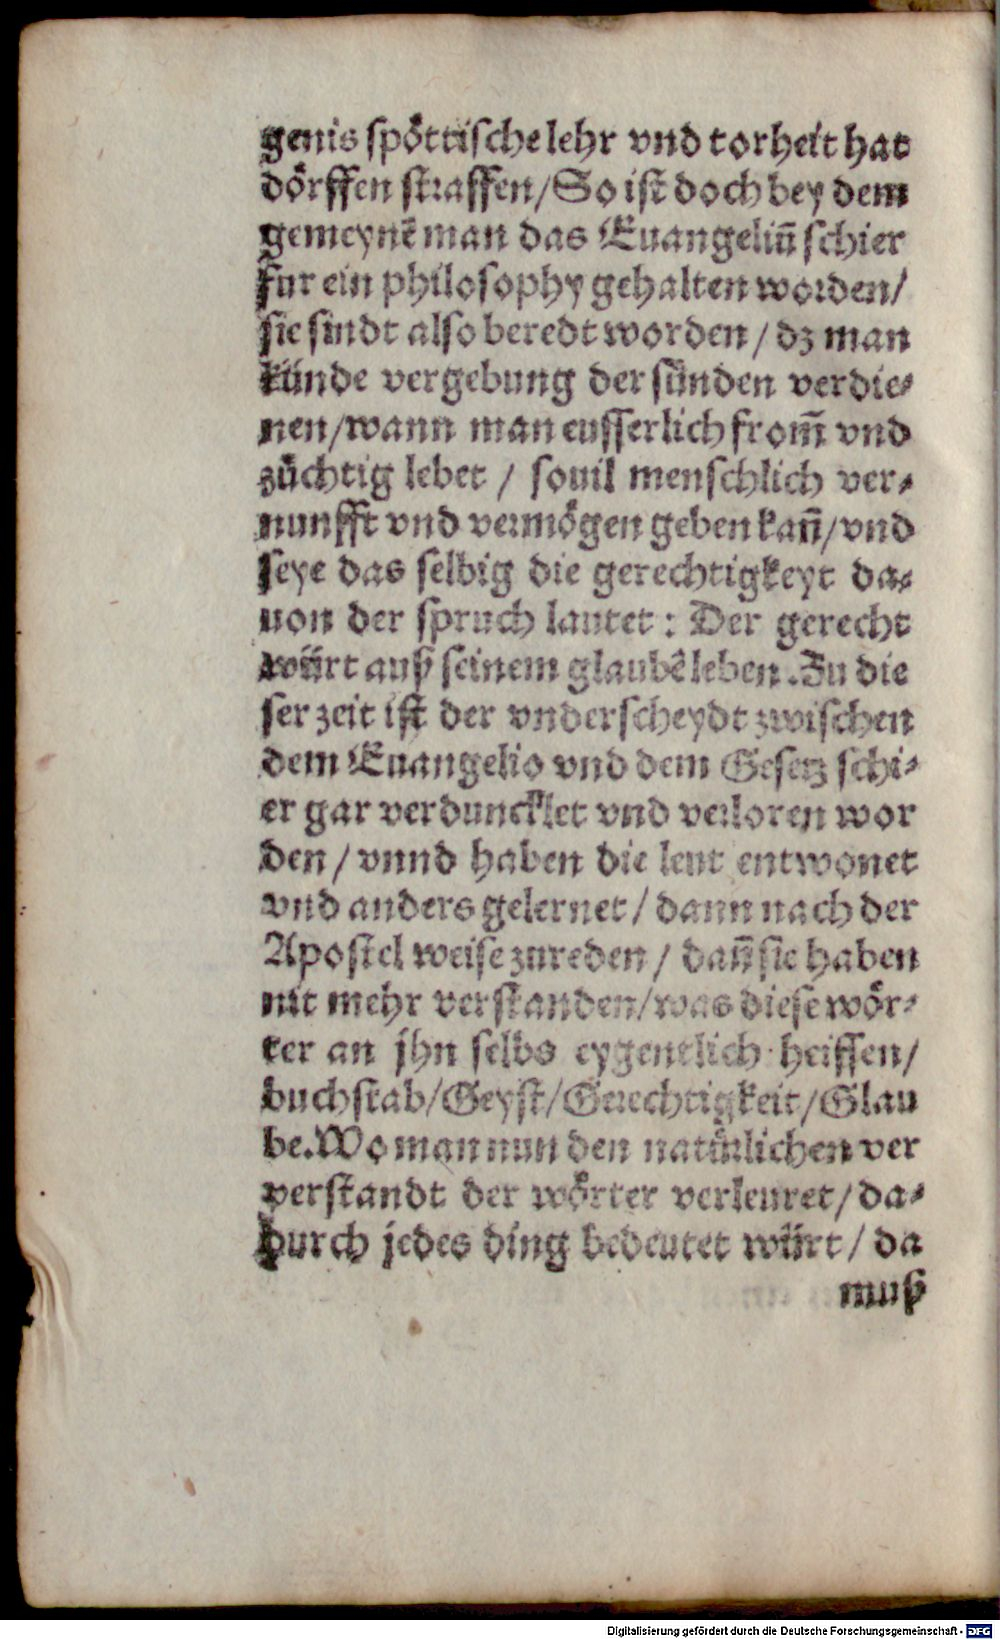 genis spöttische lehr vnd torheit hat
dörffen straffen/So ist doch bey dem
gemeynẽ man das Euangeliũ schier
fur ein philosophy gehalten worden/
sie sindt also beredt worden/ dz man
künde vergebung der sünden verdie⸗
nen/wann man eusserlich from̃ vnd
züchtig lebet / souil menschlich ver⸗
nunfft vnd vermögen geben kañ/vnd
seye das selbig die gerechtigkeyt da⸗
uon der spruch lautet : Der gerecht
würt auß seinem glaubẽ leben. Zu die
ser zeit ist der vnderscheydt zwischen
dem Euangelio vnd dem Gesetz schi⸗
er gar verduncklet vnd verloren wor
den/ vnnd haben die leut entwonet
vnd anders gelernet/ dann nach der
Apostel weise zureden/ dañ sie haben
nit mehr verstanden/was diese wör⸗
ter an jhn selbs eygentlich heissen/
buchstab/Geyst/Gerechtigkeit/Glau
be.Wo man nun den natürlichen ver
verstandt der wörter verleuret/da⸗
durch jedes ding bedeutet würt/ da
muß
Digitalisierung gefördert durch die Deutsche Forschungsgemeinschaft - DFG